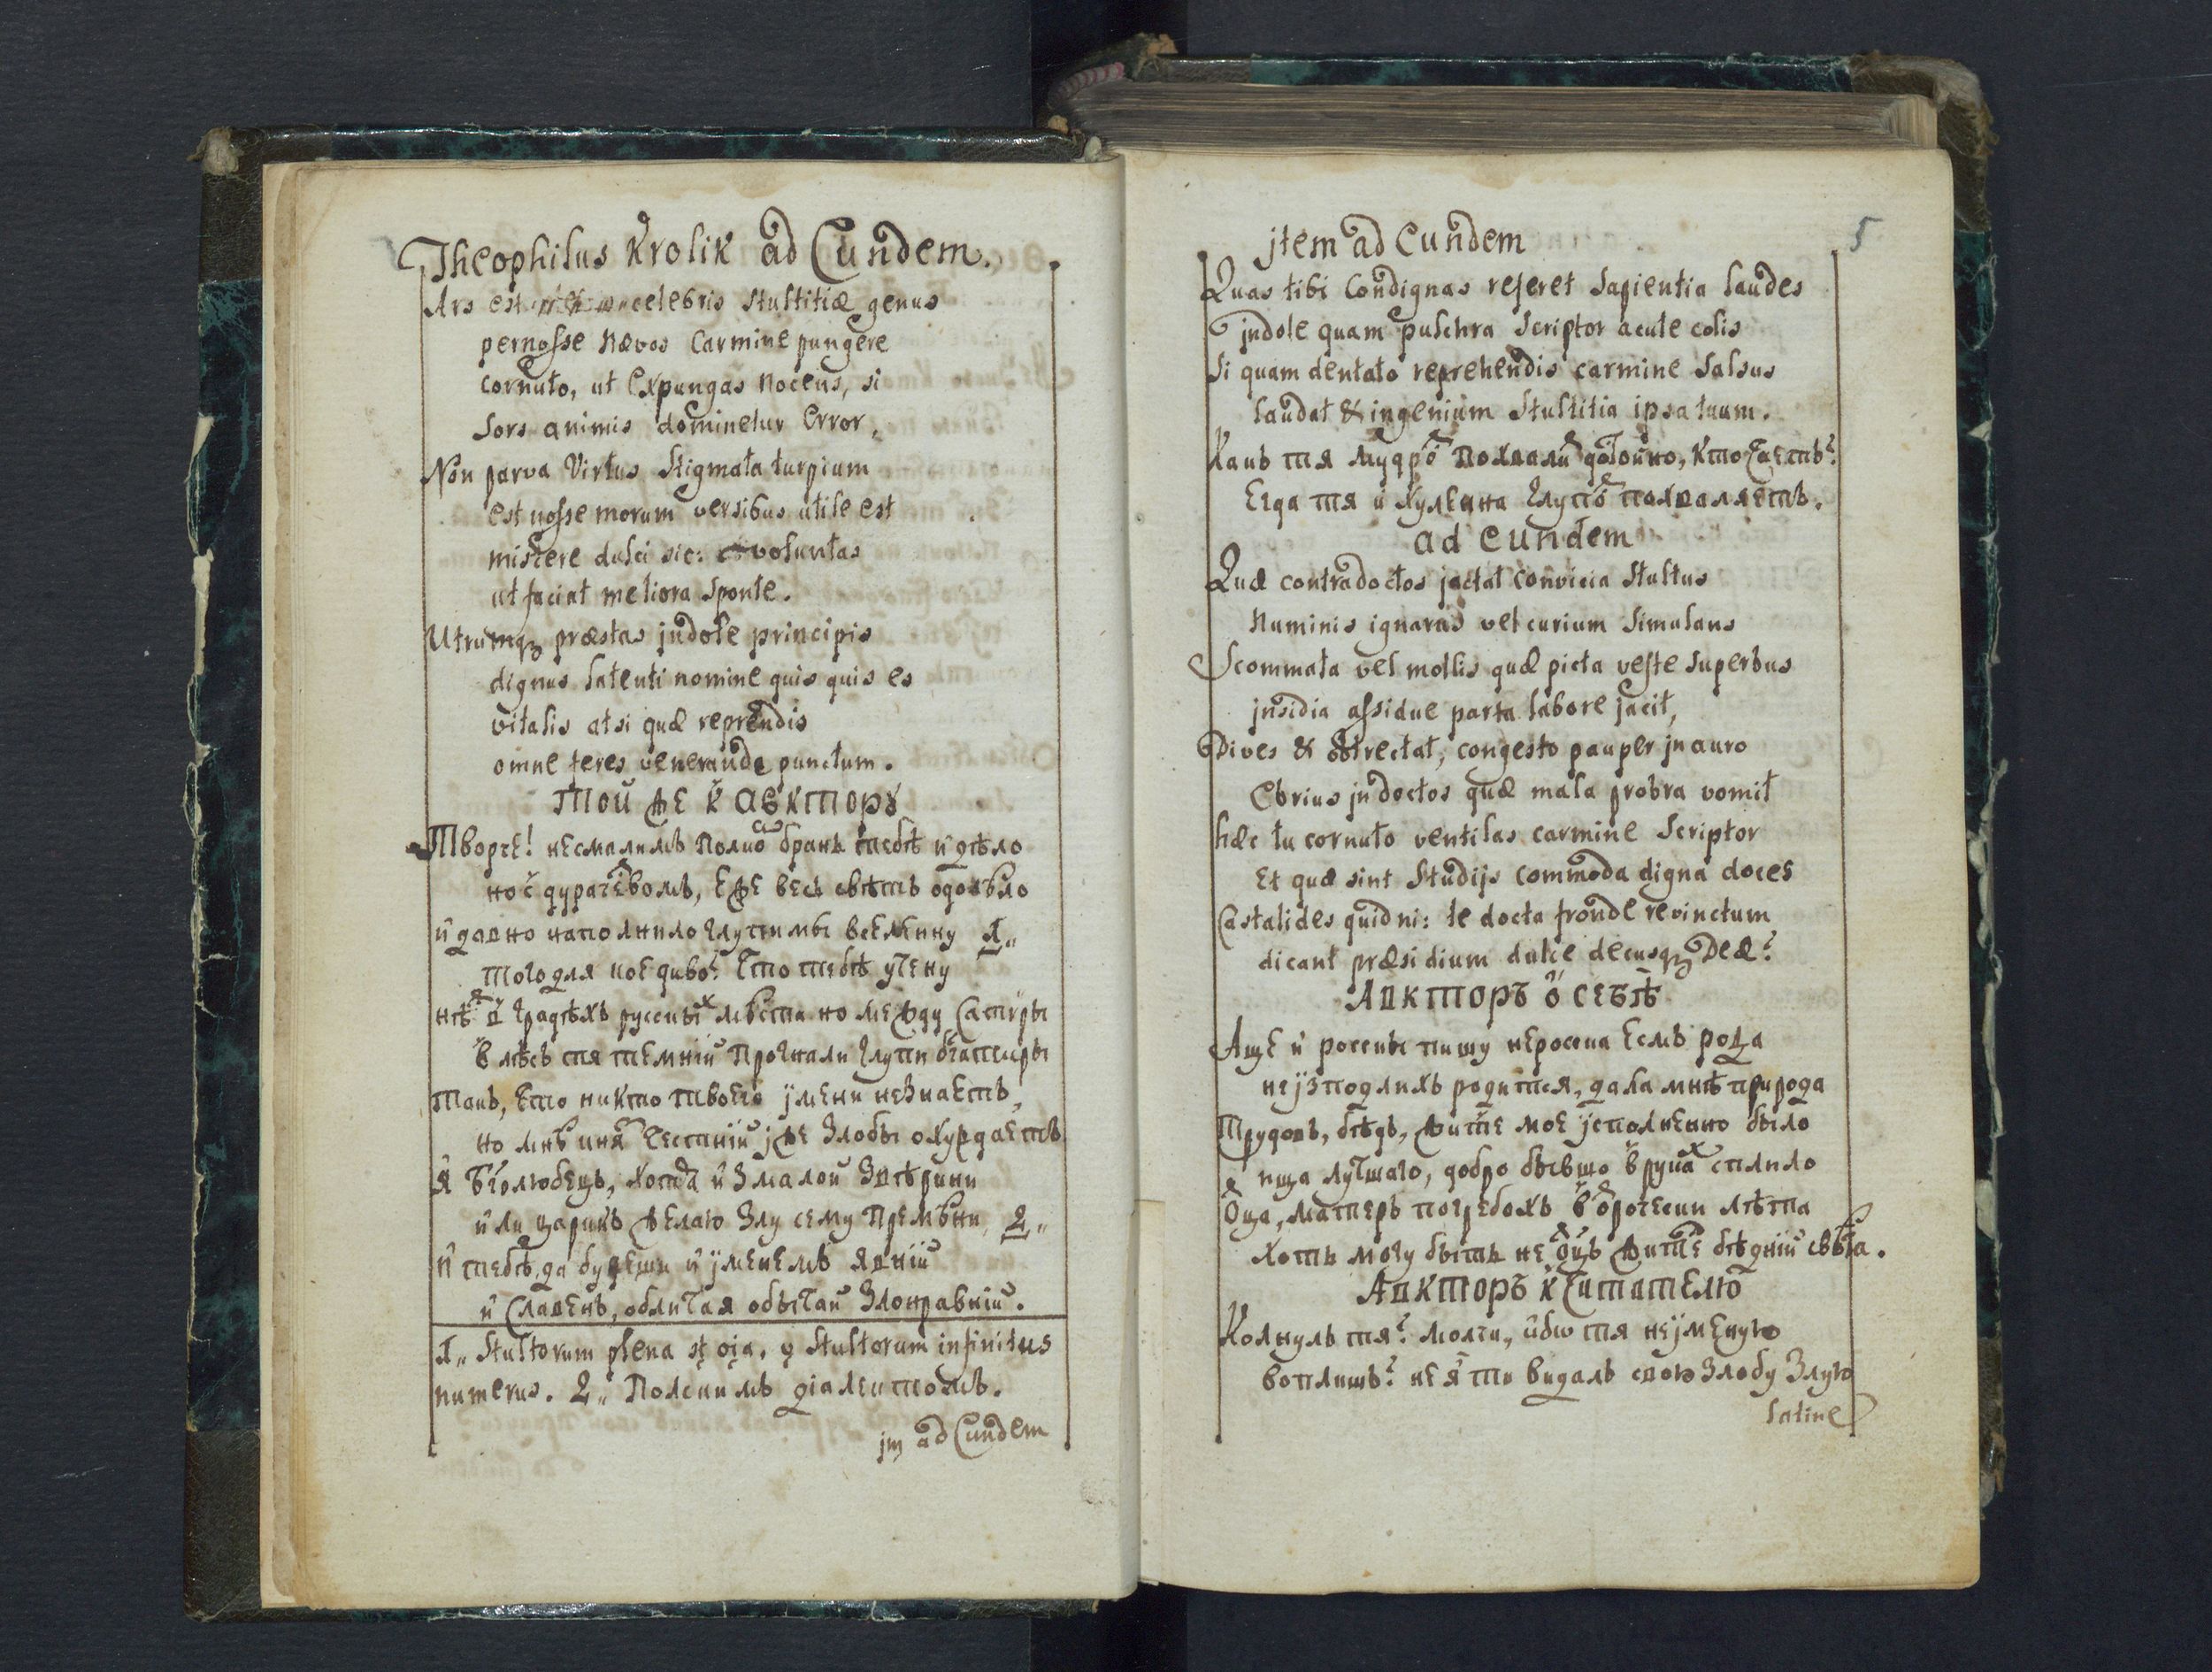 Theophilus Krolik ad Eundem.
Ars est celebris stultitiæ genus
pernosse nævos Carmine pungere
cornuto, ut expungas nocens, si
sors animis dominetur error,
Non parva Virtus stigmata turpium
est nosse morum versibus utile est
miscere dulci sic: voluntas
ut faciat meliora sponte.
Utrumq3 præstas indole principis
dignus latenti nomine quis quis es
vitalis at si quæ reprendis
omne feres venerande punctum.
Той же к̾ авктору
Творче! несмалимъ Полко бранъ тебѣ и дѣло
но с̾ дурачевомъ, Еже весь свѣтъ одолѣло
и давно наполнило глупими вселену 1„
того для кое диво? Что тебѣ учену
нѣ в градѣхъ русских мѣста но между Сатѵры
в̾ лѣсъ тя темній Прогнали глупи бгатиры
такъ, Что никто твоего имени незнаетъ,
но мнѣ Честній же злоби охуждаетъ
я Бголюбецъ, и з малой звѣрини
или царикъ желаю злу сему Премѣни 2„
и тебѣ, да будеши и именемъ явній
и Славенъ, обличая обычай злонравній.
1„ Stultorum plena st oia. et stultorum infinitus
numerus. 2„ Полскимъ діалектомъ.
ad Eundem
item ad Eundem 5
Quas tibi Condignas referet sapientia laudes
indole quam pulchra Scriptor acute colis
Si quam dentato reprehendis carmine salsus
laudat & ingenium stultitia ipsa tuum.
Какъ тя мудро Похвали достойно, кто чаетъ?
Егда тя и хулена глупо похваляетъ.
ad eundem
Quæ contradoctos jactat convicia stultus
Numinis ignarus vel curium simulans
Scommata vel mollis quæ picta veste superbus
insidia assidue parta labore jacit,
Dives & obtrectat, congesto pauper in auro
Ebrius in doctos quæ mala probra vomit
hæc tu cornuto ventilas carmine Scriptor
Et quæ sint studijs commoda digna doces
Castalides quidni: te docta fronde revinctum
dicant præsidium dulce decusq3 Deæ?
Авкторъ о себѣ
Аще и росски пишу неросска Есмъ рода
неизподлихъ родится, дала мнѣ природа
Трудовъ, бѣдъ, житие мое исполненно было
ища лучшаго, добро бывшо в руках сплило
Оца, матерь погребохъ в̾ отрочески лѣта
хоть могу быть не оцъ житие бѣдній свѣта.
Авкторъ к̾ Читателю
Колнулъ тя? молчи, ибо тя неименую
вопиишь? не я ти видалъ свою злобу злую
latine